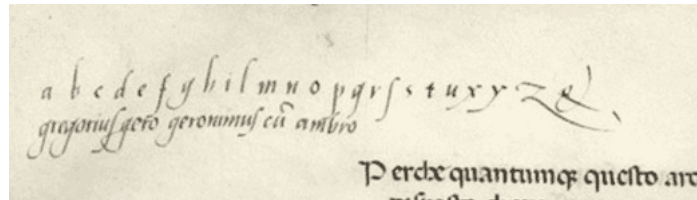 a b c d e f g h i l m n o p q r ſ s t u x y z &
gregoriuſ gero geronimuſ cū ambro
Perche quantumqꝫ queſto arc